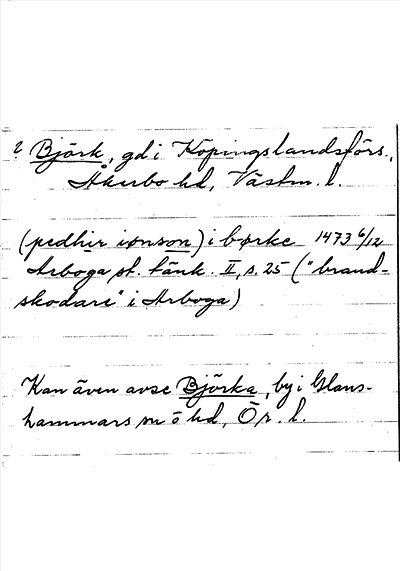 ? Björk, gd i Köpings landsförs.,
Åkerbo hd, Västm. l.
(pedhir ionson) i børke 1473 6/12
Arboga st. tänk. II, s. 25 ("brand-
skodare" i Arboga)
Kan även avse Björka, by i Glans-
hammars sn ö hd, Ör. l.